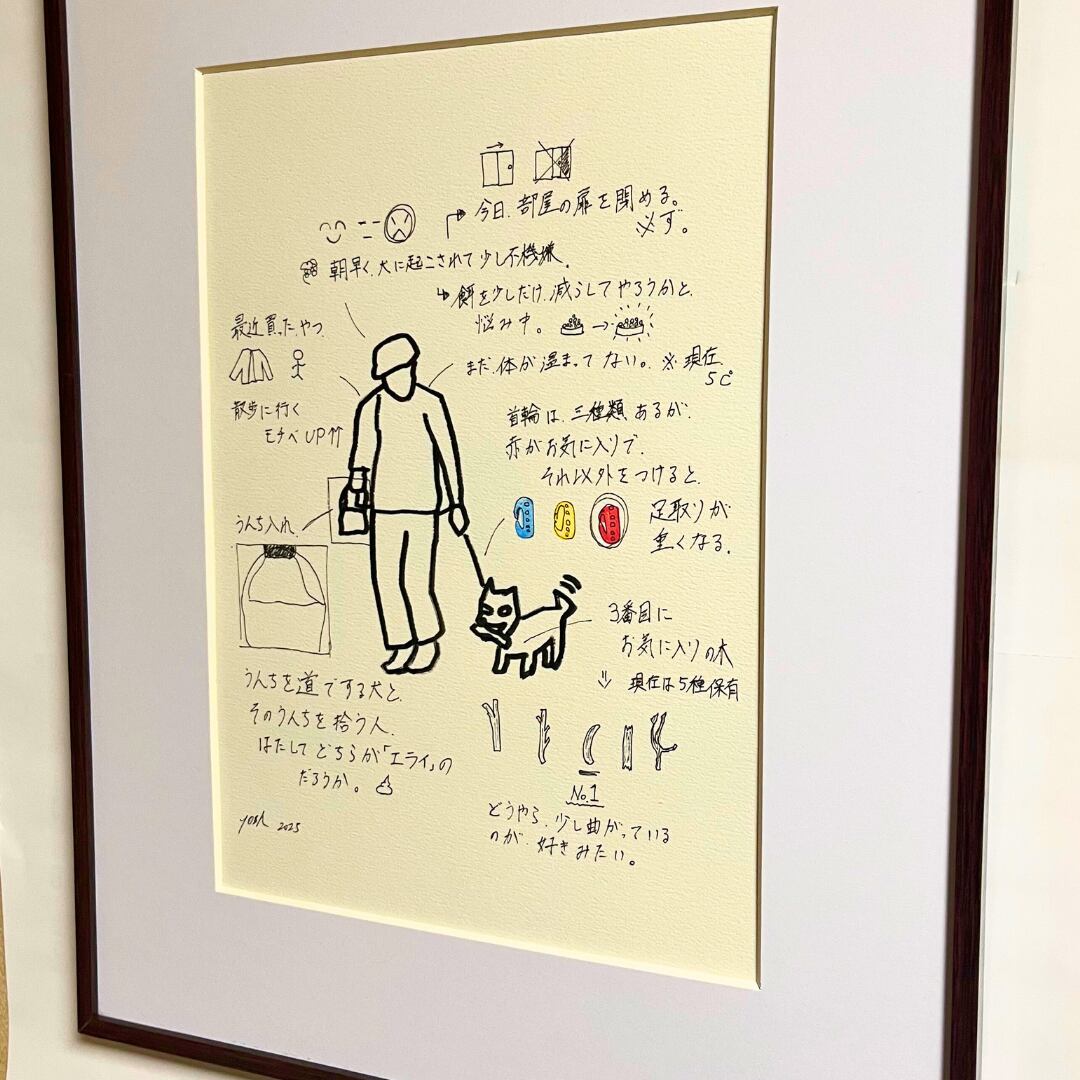 今日、部屋の扉を閉める。
必ず。
朝早く、犬に起こされて少し不機嫌。
餌を少しだけ、減らしてやろうかと、
悩み中。
最近買った、やつ
まだ、体が温まってない。※現在
5℃
散歩に行く
モチベUP⇈
首輪は、三種類、あるが、
赤がお気に入りで、
それ以外をつけると、
足取りが
重くなる。
うんち入れ
3番目に
お気に入りの木
現在は5種保有
うんちを道でする犬と、
そのうんちを拾う人、
はたしてどちらが「エライ」の
だろうか。
No.1
どうやら、少し曲がっている
のが、好きみたい。
yosh 2025